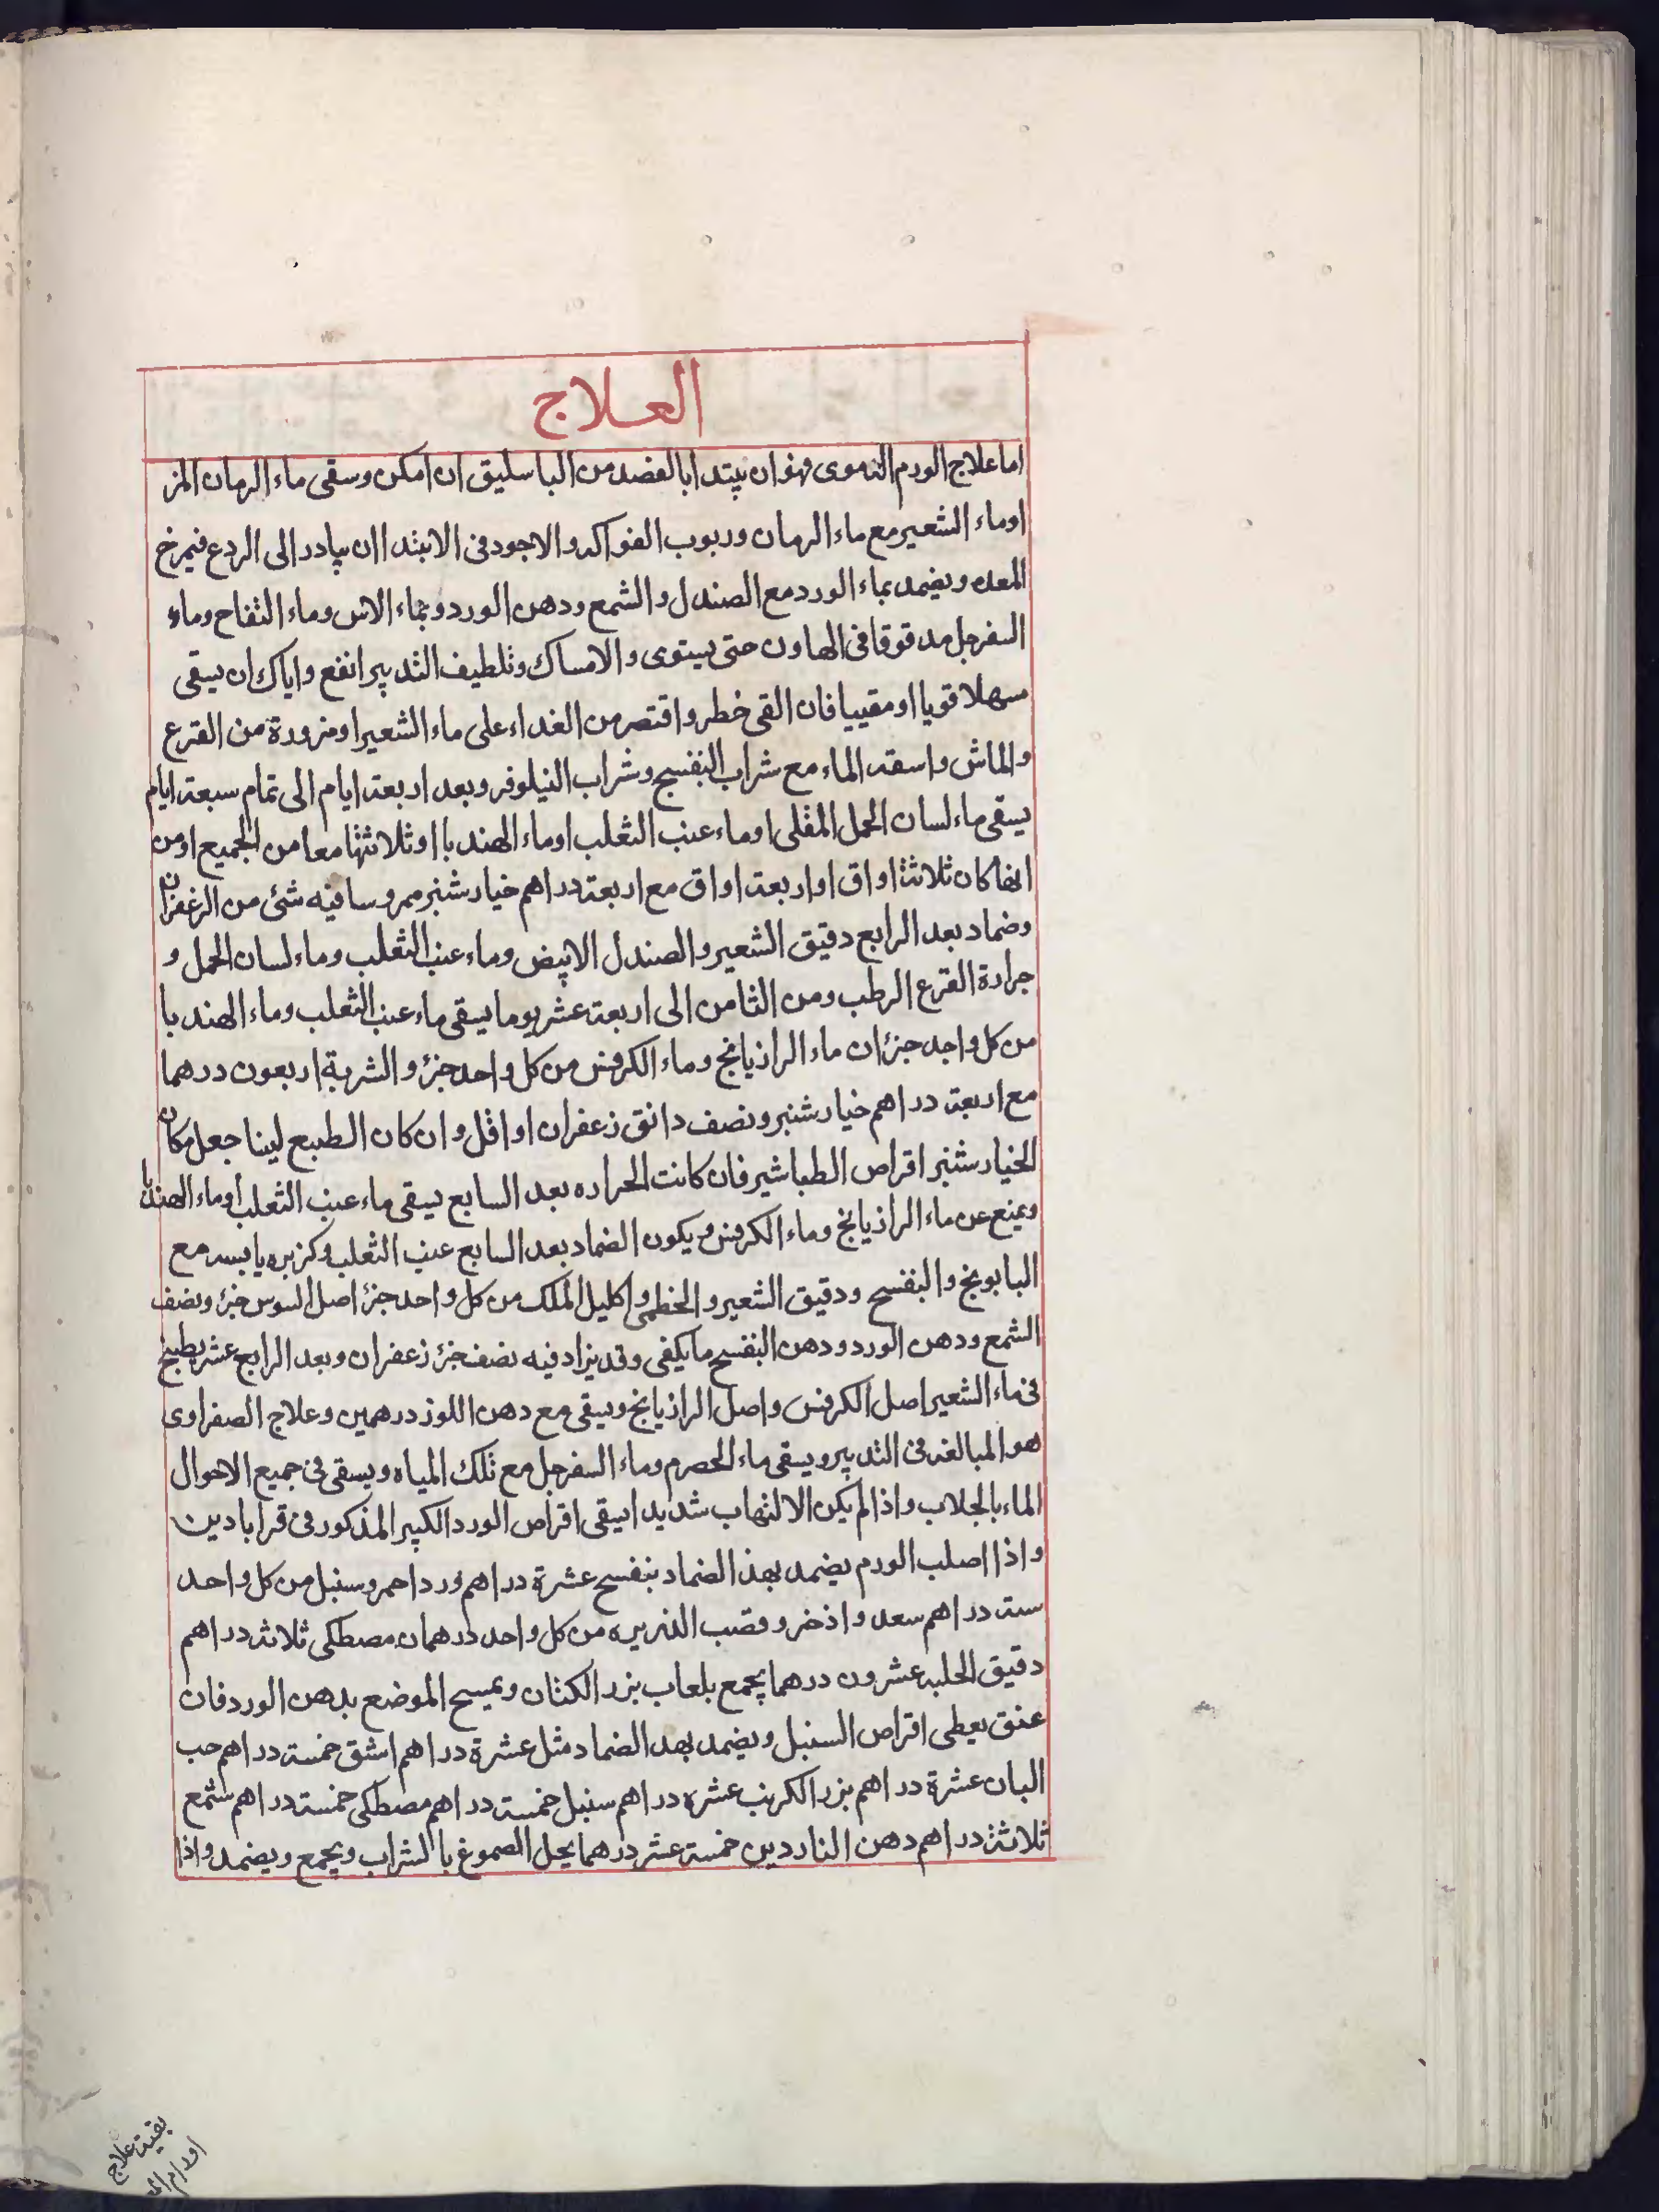 العلاج
اما علاج الورم الدموى فهو ان يبتدا بالفصد من الباسليق ان امكن وسقى ماء الرمان المز
اوماء الشعير مع ماء الرمان وربوب الفواكه والاجود فى الابتدا ان يبادر الى الردع فيمرخ
المعده ويضمد بماء الورد مع الصندل والشمع ودهن الورد وبماء الاس وماء التفاح وماء
السفرجل مدقوقا فى الهاون حتى يستوى والامساك وتلطيف التدبير انفع واياك ان يسقى
مسهلا قويا او مقييا فان القى خطر واقتصر من الغداء على ماء الشعير او مزورة من القرع
والماش واسقه الماء مع شراب البنفسج وشراب النيلوفر وبعد اربعة ايام الى تمام سبعة ايام
يسقى ماء لسان الحمل المغلى اوماء عنب الثعلب اوماء الهندبا او ثلاثتها معا من الجميع او من
ايها كان ثلاثة اواق او اربعة اواق مع اربعة دراهم خيارشنبر ممروسا فيه شئ من الزعفران
وضماد بعد الرابع دقيق الشعير والصندل الابيض وماء عنب الثعلب وماء لسان الحمل و
جرادة القرع الرطب ومن الثامن الى اربعة عشر يوما يسقى ماء عنب الثعلب وماء الهندبا
من كل واحد جزءان ماء الرازيانج وماء الكرفس من كل واحد جزؤ والشربة اربعون درهما
مع اربعة دراهم خيارشنبر ونصف دانق زعفران او اقل وان كان الطبع لينا جعل مكان
الخيارشنبر اقراص الطباشير فان كانت الحراره بعد السابع يسقى ماء عنب الثعلب أوماء الهندبا
ويمنع عن ماء الرازيانج وماء الكرفس ويكون الضماد بعد السابع عنب الثعلب وكزبره يابسه مع
البابونج والبنفسج ودقيق الشعير والخطمى واكليل الملك من كل واحد جزؤ اصل السوس جزؤ ونصف
الشمع ودهن الورد ودهن البنفسج ما يكفى وقد يزاد فيه نصف جزؤ زعفران وبعد الرابع عشر يطبخ
فى ماء الشعير اصل الكرفس واصل الرازيانج ويسقى مع دهن اللوز درهمين وعلاج الصفراوى
هو المبالغه فى التدبير ويسقى ماء الحصرم وماء السفرجل مع تلك المياه ويسقى فى جميع الاحوال
الماء بالجلاب واذا لم يكن الالتهاب شديدا يسقى اقراص الورد الكبير المذكور فى قرابادين
واذا اصلب الورم يضمد بهذ الضماد بنفسج عشرة دراهم ورد احمر وسنبل من كل واحد
ستة دراهم سعد واذخر وقصب الذريره من كل واحد درهمان مصطكى ثلاثة دراهم
دقيق الحلبه عشرون درهما يجمع بلعاب بزر الكتان ويمسح الموضع بدهن الورد فان
عتق يعطى اقراص السنبل ويضمد بهد الضماد مثل عشرة دراهم اشق خمسة دراهم حب
البان عشرة دراهم بزر الكرنب عشره دراهم سنبل خمسة دراهم مصطكى خمسة دراهم شمع
ثلاثة دراهم دهن الناردين خمسة عشر درهما يحل الصموغ بالشراب ويجمع ويضمد واذا
بقية علاج
اورام